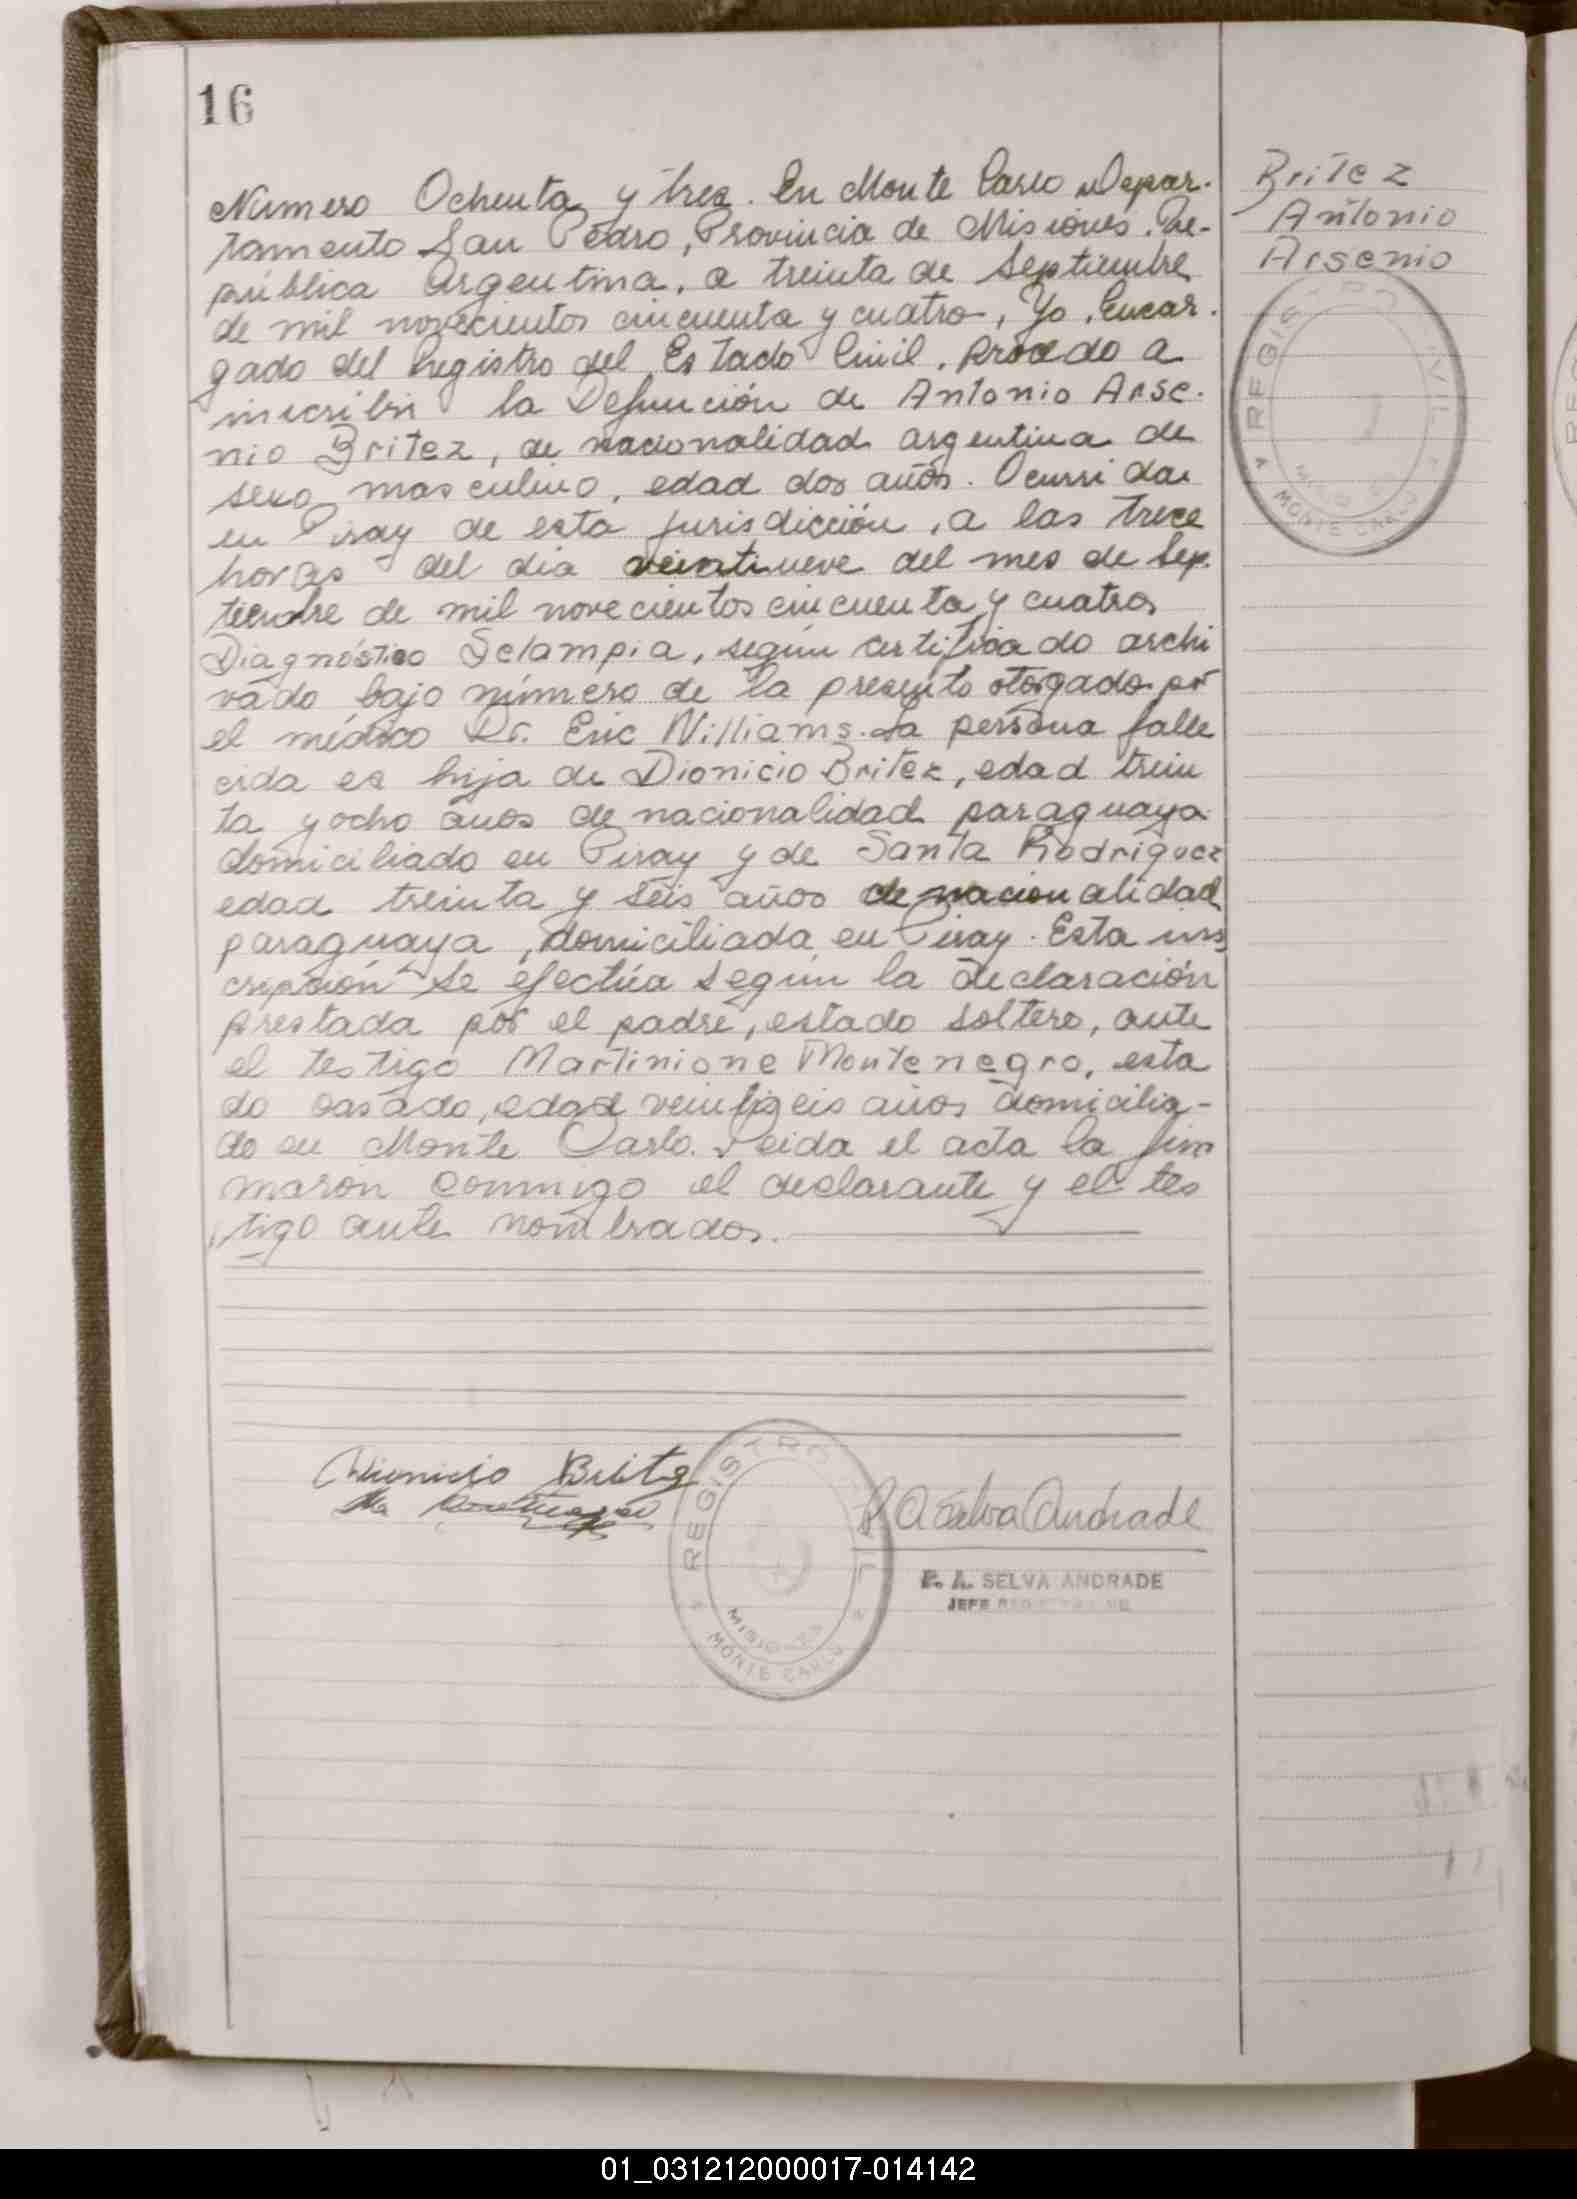 16
Britez
Antonio
Arsenio
Número Ochenta y tres. En Monte Carlo Depar-
tamento San Pedro, Provincia de Misiones. Re-
pública Argentina, a treinta de Septiembre
de mil novecientos cincuenta y cuatro, Yo, Encar-
gado del Registro del Estado Civil, procedo a
inscribir la Defunción de Antonio Arse-
nio Britez, de nacionalidad argentina de
sexo masculino, edad dos años. Ocurrida
en Piray de esta jurisdicción, a las trece
horas del día veintinueve del mes de Sep-
tiembre de mil novecientos cincuenta y cuatro,
Diagnóstico Eclampia, según certificado archi
vado bajo número de la presente otorgado por
el médico Dr. Eric Williams. La persona falle
cida es hija de Dionicio Britez, edad trein
ta y ocho años de nacionalidad paraguaya
domiciliado en Piray y de Santa Rodriguez
edad treinta y seis años de nacionalidad
paraguaya, domiciliada en Piray. Esta ins
cripción se efectúa según la declaración
prestada por el padre, estado soltero, ante
el testigo Martinione Montenegro, esta
do casado, edad veintiseis años domicilia-
do en Monte Carlo. Leida el acta la fir
maron conmigo el declarante y el tes
tigo ante nombrados.
Dionicio Britez
P A Selva Andrade
P. A. SELVA ANDRADE
JEFE
REGISTRO CIVIL
MISIONES
MONTE CARLO
REGISTRO CIVIL
MISIONES
MONTE CARLO
01_031212000017-014142